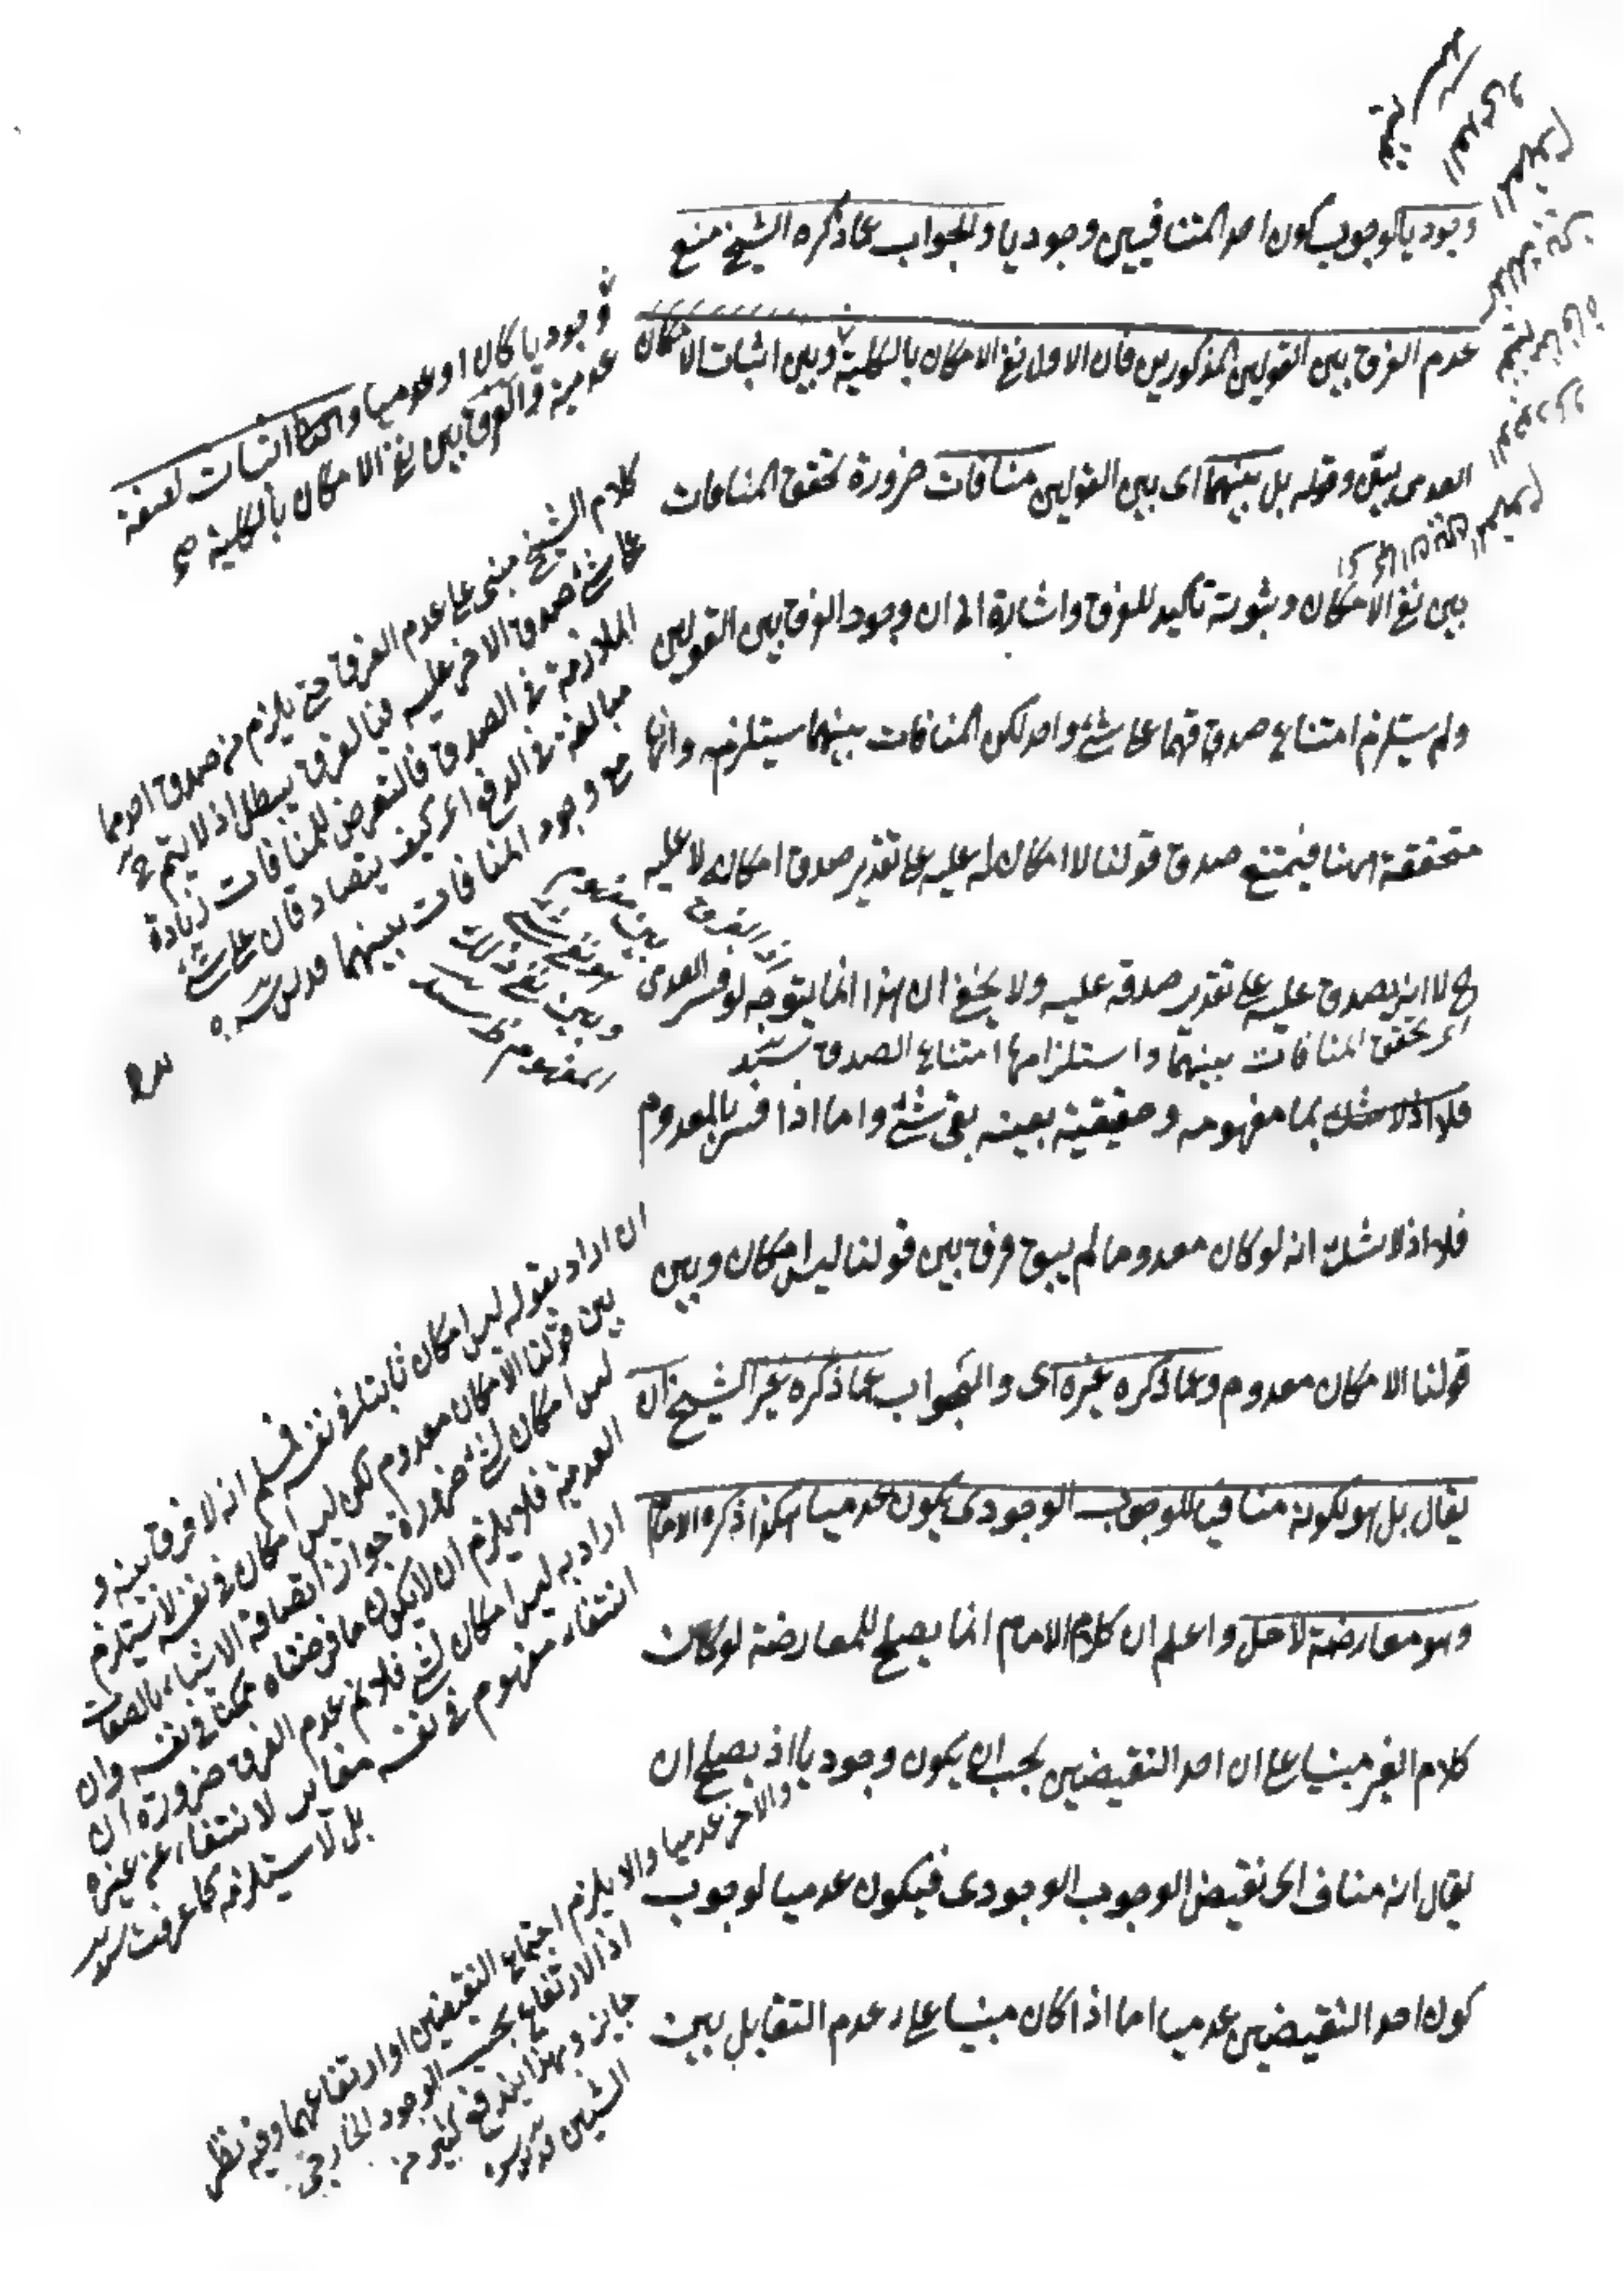 وجوديا لوجوب كون احد المتنافيين وجوديا والجواب عما ذكره الشيخ منع
عدم الفرق بين القولين المذكورين فان الاول نفى الامكان بالكلية وبين اثبات الامكان
العدمى يبقى وقوله بل بينهما اى بين القولين منافات ضرورة تحقق المنافات
بين نفى الامكان وثبوته تاكيد للفرق واشارة الى ان وجود الفرق بين القولين
ولم يستلزم امتناع صدقهما على شئ واحد لكن المنافات بينهما يستلزمه وانها
متحققة ههنا فيمتنع صدق قولنا لا امكان له عليه على تقدير صدق امكانه لا عليه
لا انه يصدق عليه على تقدير صدقه عليه ولا يخفى ان هذا انما يتوجه لو فسر العدمى
اى تحقق المنافات بينهما واستلزامها امتناع الصدق
بما مفهومه وحقيقته بعينه نفى شئ واما اذا فسر بالمعدوم
فلا اذ لا شك انه لو كان معدوما لم يبق فرق بين قولنا ليس امكان وبين
قولنا الامكان معدوم وعما ذكره غيره اى والجواب عما ذكره غير الشيخ ان
يقال بل هو لكونه منافيا للوجوب الوجودى يكون عدميا هكذا ذكره الامام
وهو معارضة لا حل واعلم ان كلام الامام انما يصلح للمعارضة لو كان
كلام الغير مبنيا على ان احد النقيضين يجب ان يكون وجوديا اذ يصلح ان
يقال انه مناف اى نقيض الوجوب الوجودى فيكون عدميا لوجوب
كون احد النقيضين عدميا اما اذا كان مبنيا على عدم التقابل بين
وجوديا كان او عدميا اثبات لصفة
عدمية والفرق بين نفى الامكان بالكلية
كلام الشيخ مبنى على عدم الفرق حتى يلزم من صدق احدهما
على شئ صدق الاخر عليه فبالفرق يبطل اذ لا يتم ح
الملازمة فى الصدق فالتعرض للمنافات زيادة
مبالغة فى الدفع اى كيف يتصادقان على شئ
مع وجود المنافات بينهما
اذ الفرق
بين مفهوم
هو نفى شئ
وبين نفى ذلك
المفهوم
ان اراد بقوله ليس امكان ثابتا فى نفسه فمسلم انه لا فرق بينه و
بين قولنا الامكان معدوم لكن ليس امكان فى نفسه لا يستلزم
ليس امكان لشئ ضرورة جواز اتصاف الاشياء بالصفات
العدمية فلا يلزم ان لا يكون ما فرضناه ممكنا فى نفسه وان
اراد به ليس امكان لشئ فلا نم عدم الفرق ضرورة ان
انتفاء مفهوم فى نفسه مغاير لانتفائه عن غيره
بل لا يستلزمه كما عرفت
والاخر عدميا والا يلزم اجتماع النقيضين او ارتفاعهما وفيه نظر
اذ الارتفاع بحسب الوجود الخارجى
جايز وبهذا يندفع كثير من